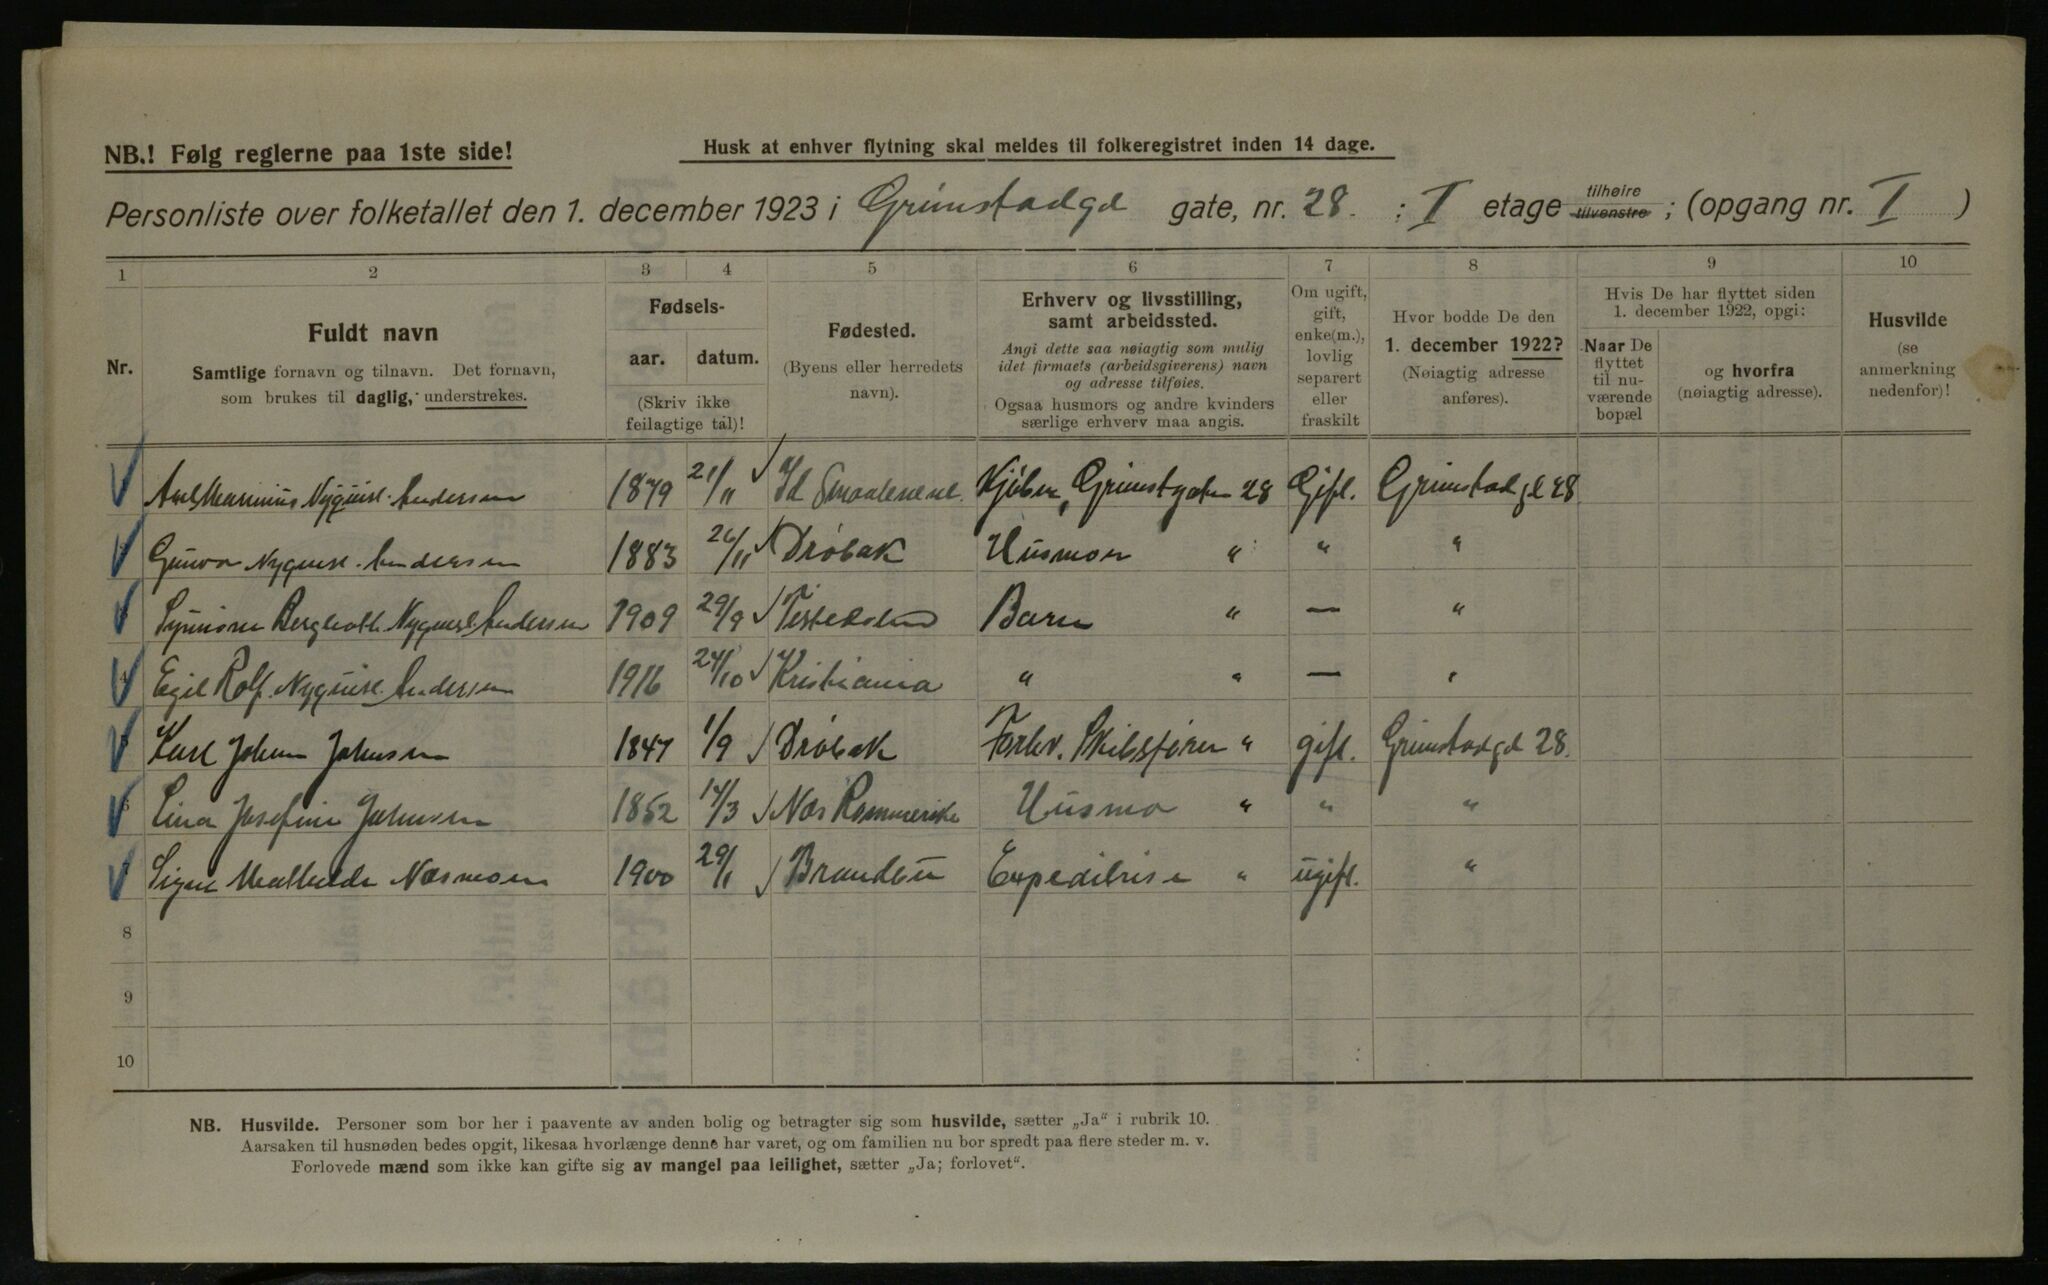 NB.! Følg reglerne paa 1ste side!
Husk at enhver flytning skal meldes til folkeregistret inden 14 dage.
Personliste over folketallet den 1. december 1923 i Grimstadgd gate, nr. 28. : I etage tilhøire tilvenstre ; (opgang nr. I )
1 2 3 4 5 6 7 8 9 10
Nr.
Fuldt navn
Samtlige fornavn og tilnavn. Det fornavn,
som brukes til daglig, understrekes.
Fødsels-
aar. datum.
(Skriv ikke
feilagtige tal)!
Fødested.
(Byens eller herredets
navn).
Erhverv og livsstilling,
samt arbeidssted.
Angi dette saa nøiagtig som mulig
idet firmaets (arbeidsgiverens) navn
og adresse tilføies.
Ogsaa husmors og andre kvinders
særlige erhverv maa angis.
Om ugift,
gift,
enke(m.),
lovlig
separert
eller
fraskilt
Hvor bodde De den
1. december 1922?
(Nøiagtig adresse
anføres).
Hvis De har flyttet siden
1. december 1922, opgi:
Naar De
flyttet
til nu-
værende
bopæl
og hvorfra
(nøiagtig adresse).
Husvilde
(se
anmerkning
nedenfor)!
Marinius Nyquist. Andersen 1879 21/11 Id Smaalenene Grimstgaten 28 Gift. Grimstadgd 28
Nyquist. Andersen 1883 26/11 Drøbak Husmor " " "
Bergliott Nyquist Andersen 1909 29/9 Barn " — "
4 Egil Rolf. Nyquist. Andersen 1916 24/10 Kristiania " " — "
5 Karl Johan Johnsen 1847 1/9 Drøbak Forhv. Skibsfører " gift. Grimstadgd 28.
6 Lina Josefine Johnsen 1852 14/3 Næs Rommerike Husmo " " "
7 Signe Mathilde Næsmoen 1900 29/1 Brandbu Expeditrise " ugift. "
8
9
10
NB. Husvilde. Personer som bor her i paavente av anden bolig og betragter sig som husvilde, sætter „Ja“ i rubrik 10.
Aarsaken til husnøden bedes opgit, likesaa hvorlænge denne har varet, og om familien nu bor spredt paa flere steder m. v.
Forlovede mænd som ikke kan gifte sig av mangel paa leilighet, sætter „Ja; forlovet“.